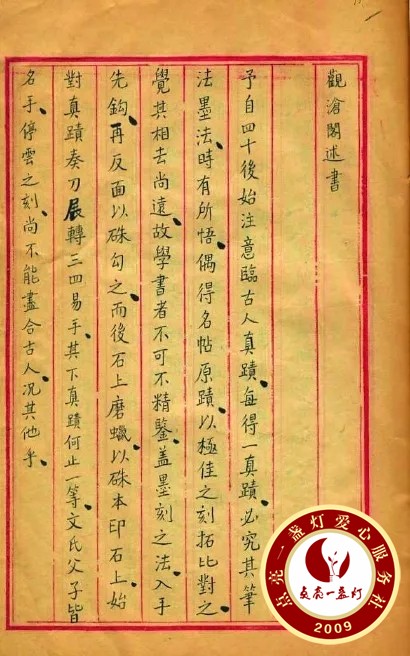 觀滄閣述書
予自四十後始注意臨古人真蹟每得一真蹟必究其筆
法墨法時有所悟偶得名帖原蹟以極佳之刻拓比對之
覺其相去尚遠故學書者不可不精鑒蓋墨刻之法入手
先鈎再反面以硃勾之而後石上磨蠟以硃本印石上始
對真蹟奏刀展轉三四易手其下真蹟何止一等文氏父子皆
名手停雲之刻尚不能盡合古人况其他乎
点亮一盏灯爱心服务社
点亮一盏灯
2009